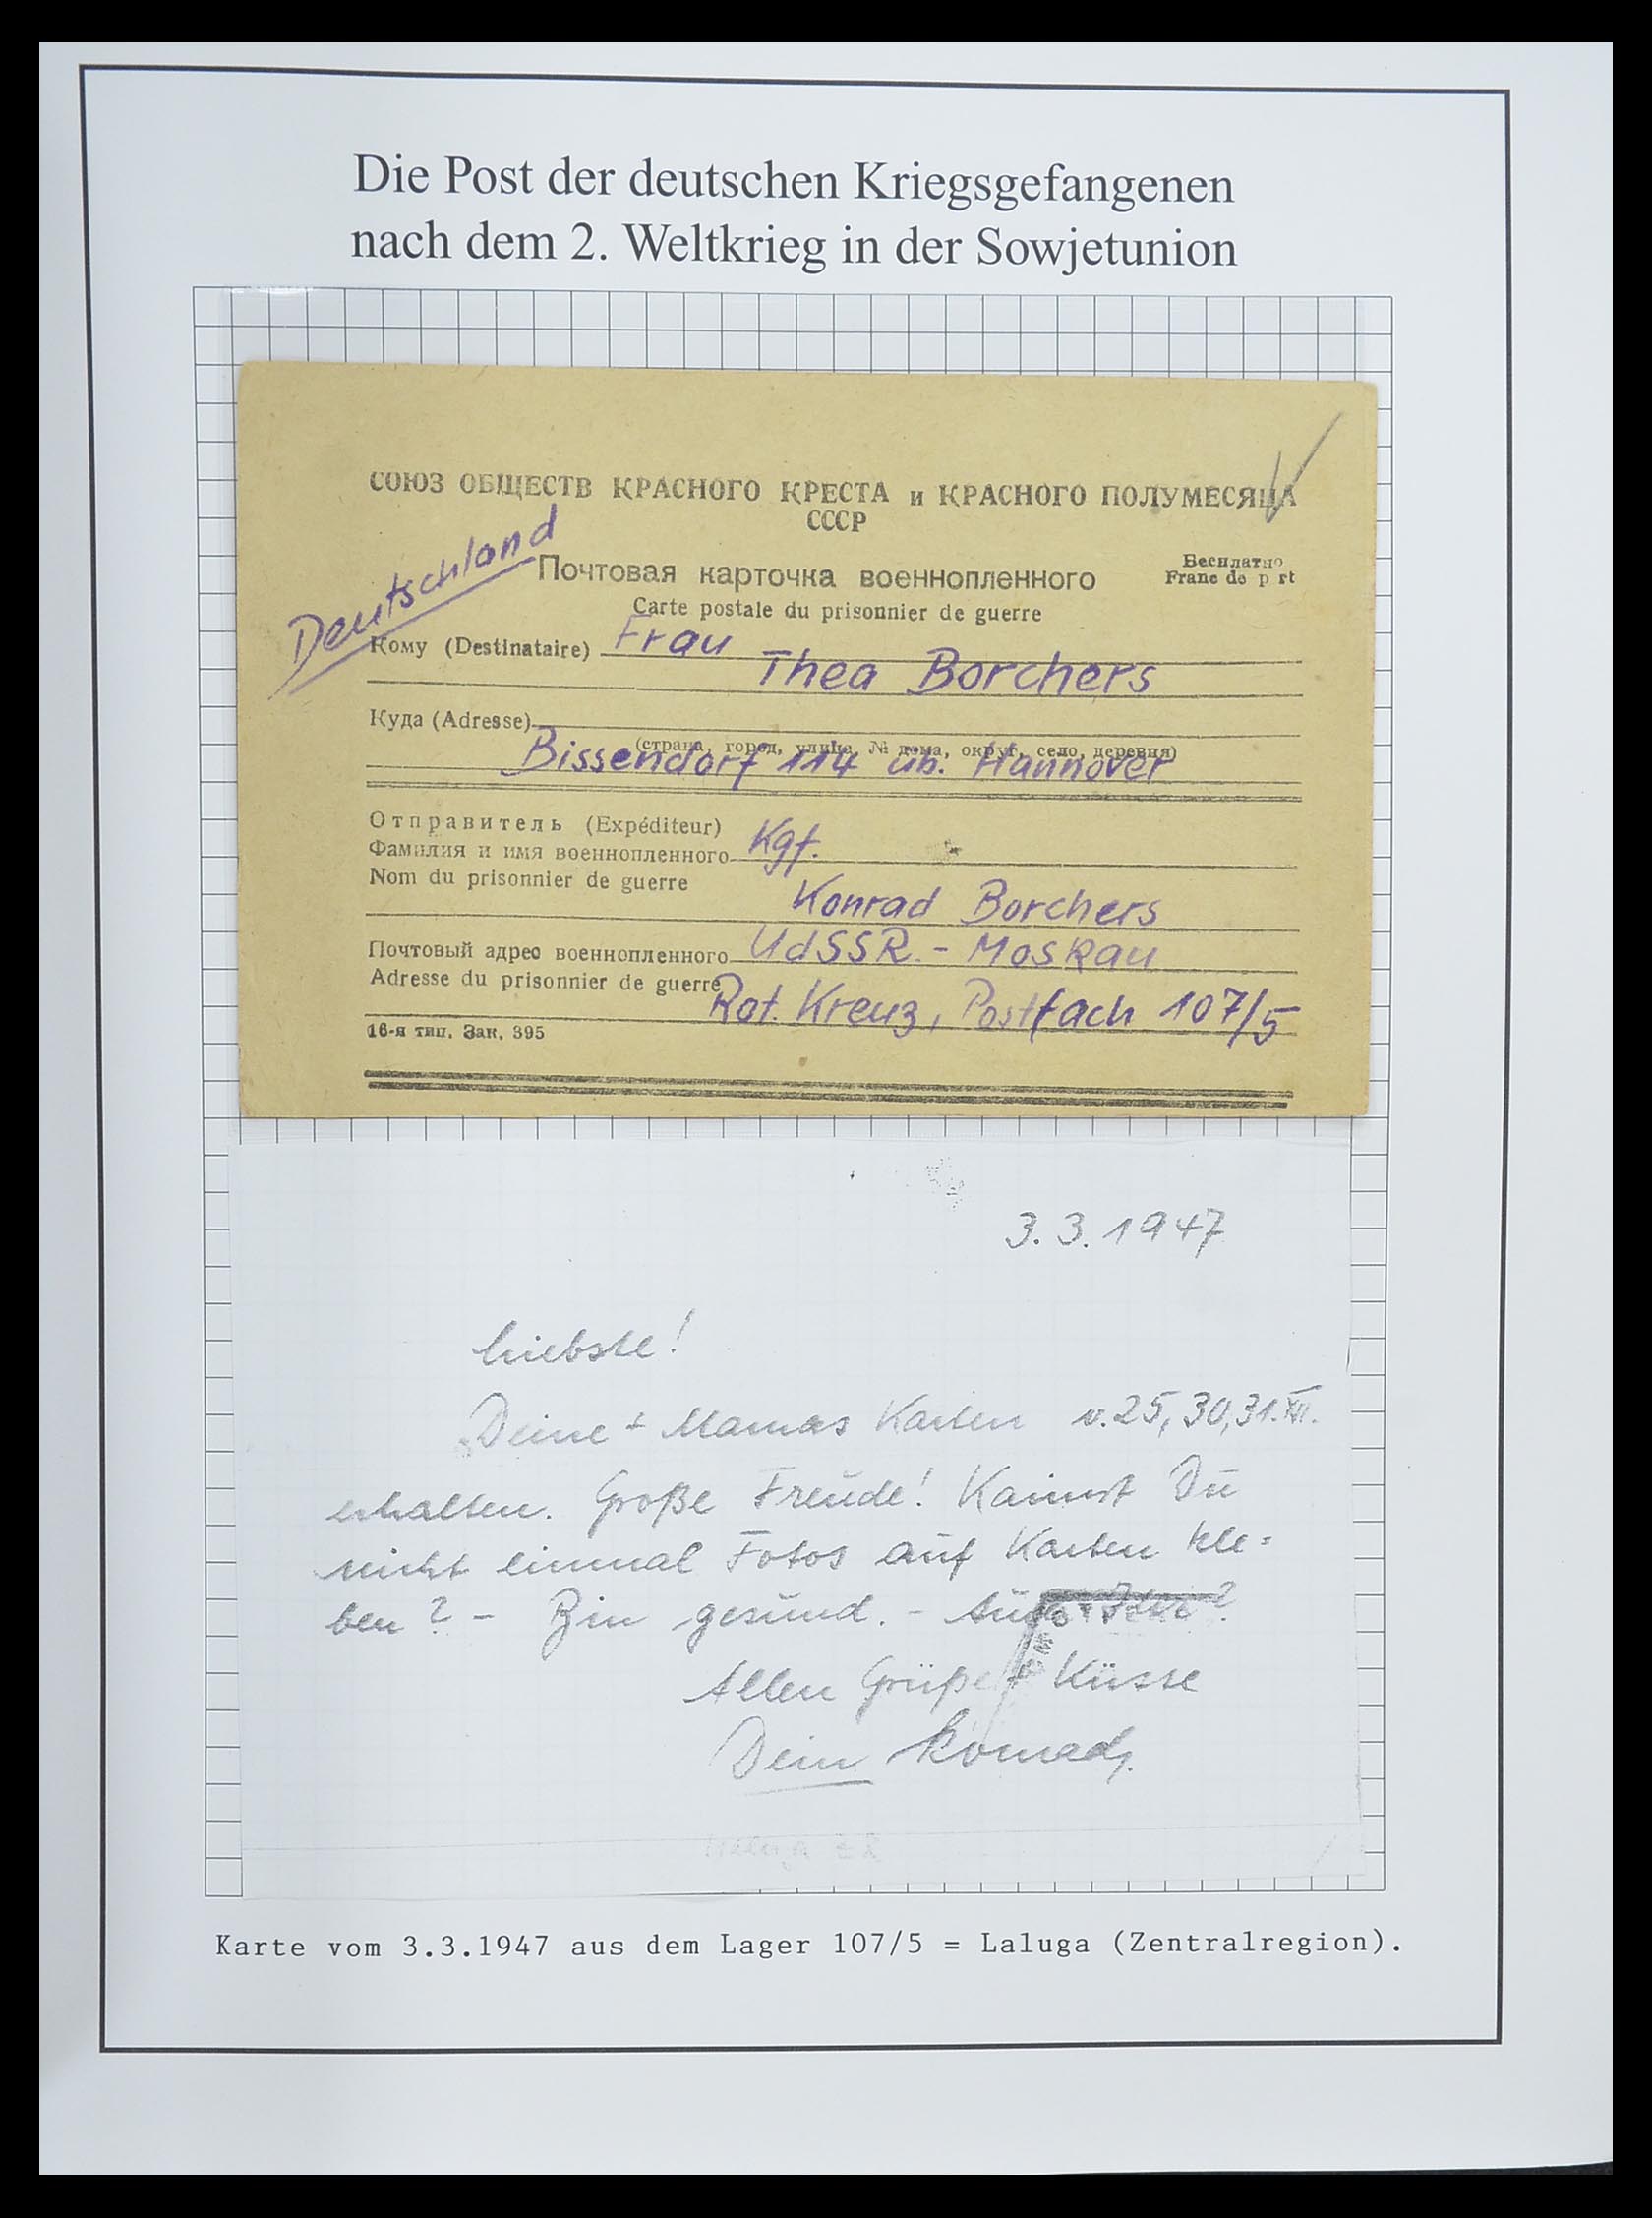 Die Post der deutschen Kriegsgefangenen
nach dem 2. Weltkrieg in der Sowjetunion
СОЮЗ ОБЩЕСТВ КРАСНОГО КРЕСТА и КРАСНОГО ПОЛУМЕСЯЦА
СССР
Deutschland
Почтовая карточка военнопленного
Бесплатно
Franc de p rt
Carte postale du prisonnier de guerre
Кому (Destinataire) Frau
Thea Borchers
Куда (Adresse)
(страна, город, улица, № дома, округ, село, деревня)
Bissendorf 114 üb. Hannover
Отправитель (Expéditeur)
Фамилия и имя военнопленного Kgf.
Nom du prisonnier de guerre
Konrad Borchers
Почтовый адрес военнопленного UdSSR. - Moskau
Adresse du prisonnier de guerre
Rot. Kreuz, Postfach 107/5
16-я тип. Зак. 395
3. 3. 1947
Liebste!
Deine + Mamas Karten v. 25, 30, 31. XII.
erhalten. Große Freude! Kannst Du
nicht einmal Fotos auf Karten kle=
ben? - Bin gesund. -
Allen Grüße + Küsse
Dein Konrad.
Karte vom 3.3.1947 aus dem Lager 107/5 = Laluga (Zentralregion).